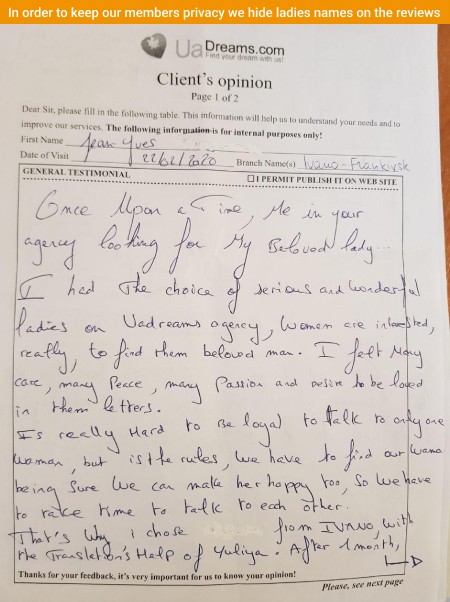 In order to keep our members privacy we hide ladies names on the reviews
UaDreams.com
Find your dream with us!
Client's opinion
Page 1 of 2
Dear Sir, please fill in the following table. This information will help us to understand your needs and to
improve our services. The following information is for internal purposes only!
First Name Jean Yves
Date of Visit 22/02/2020 Branch Name(s) Ivano-Frankivsk
GENERAL TESTIMONIAL ☐ I PERMIT PUBLISH IT ON WEB SITE
Once Upon a Time, Me in your
agency looking for My Beloved lady...
I had the choice of serious and wonderful
ladies on Uadreams agency, women are interested,
really, to find them beloved man. I felt Many
care, many Peace, many Passion and desire to be loved
in them letters.
Is really Hard to Be loyal to talk to only one
woman, but is the rules, we have to find our woman
being sure we can make her happy too, so we have
to take time to talk to each other.
That's why i chose from IVANO, with
the Translation's Help of Yuliya. After 1 month,
Thanks for your feedback, it's very important for us to know your opinion!
Please, see next page